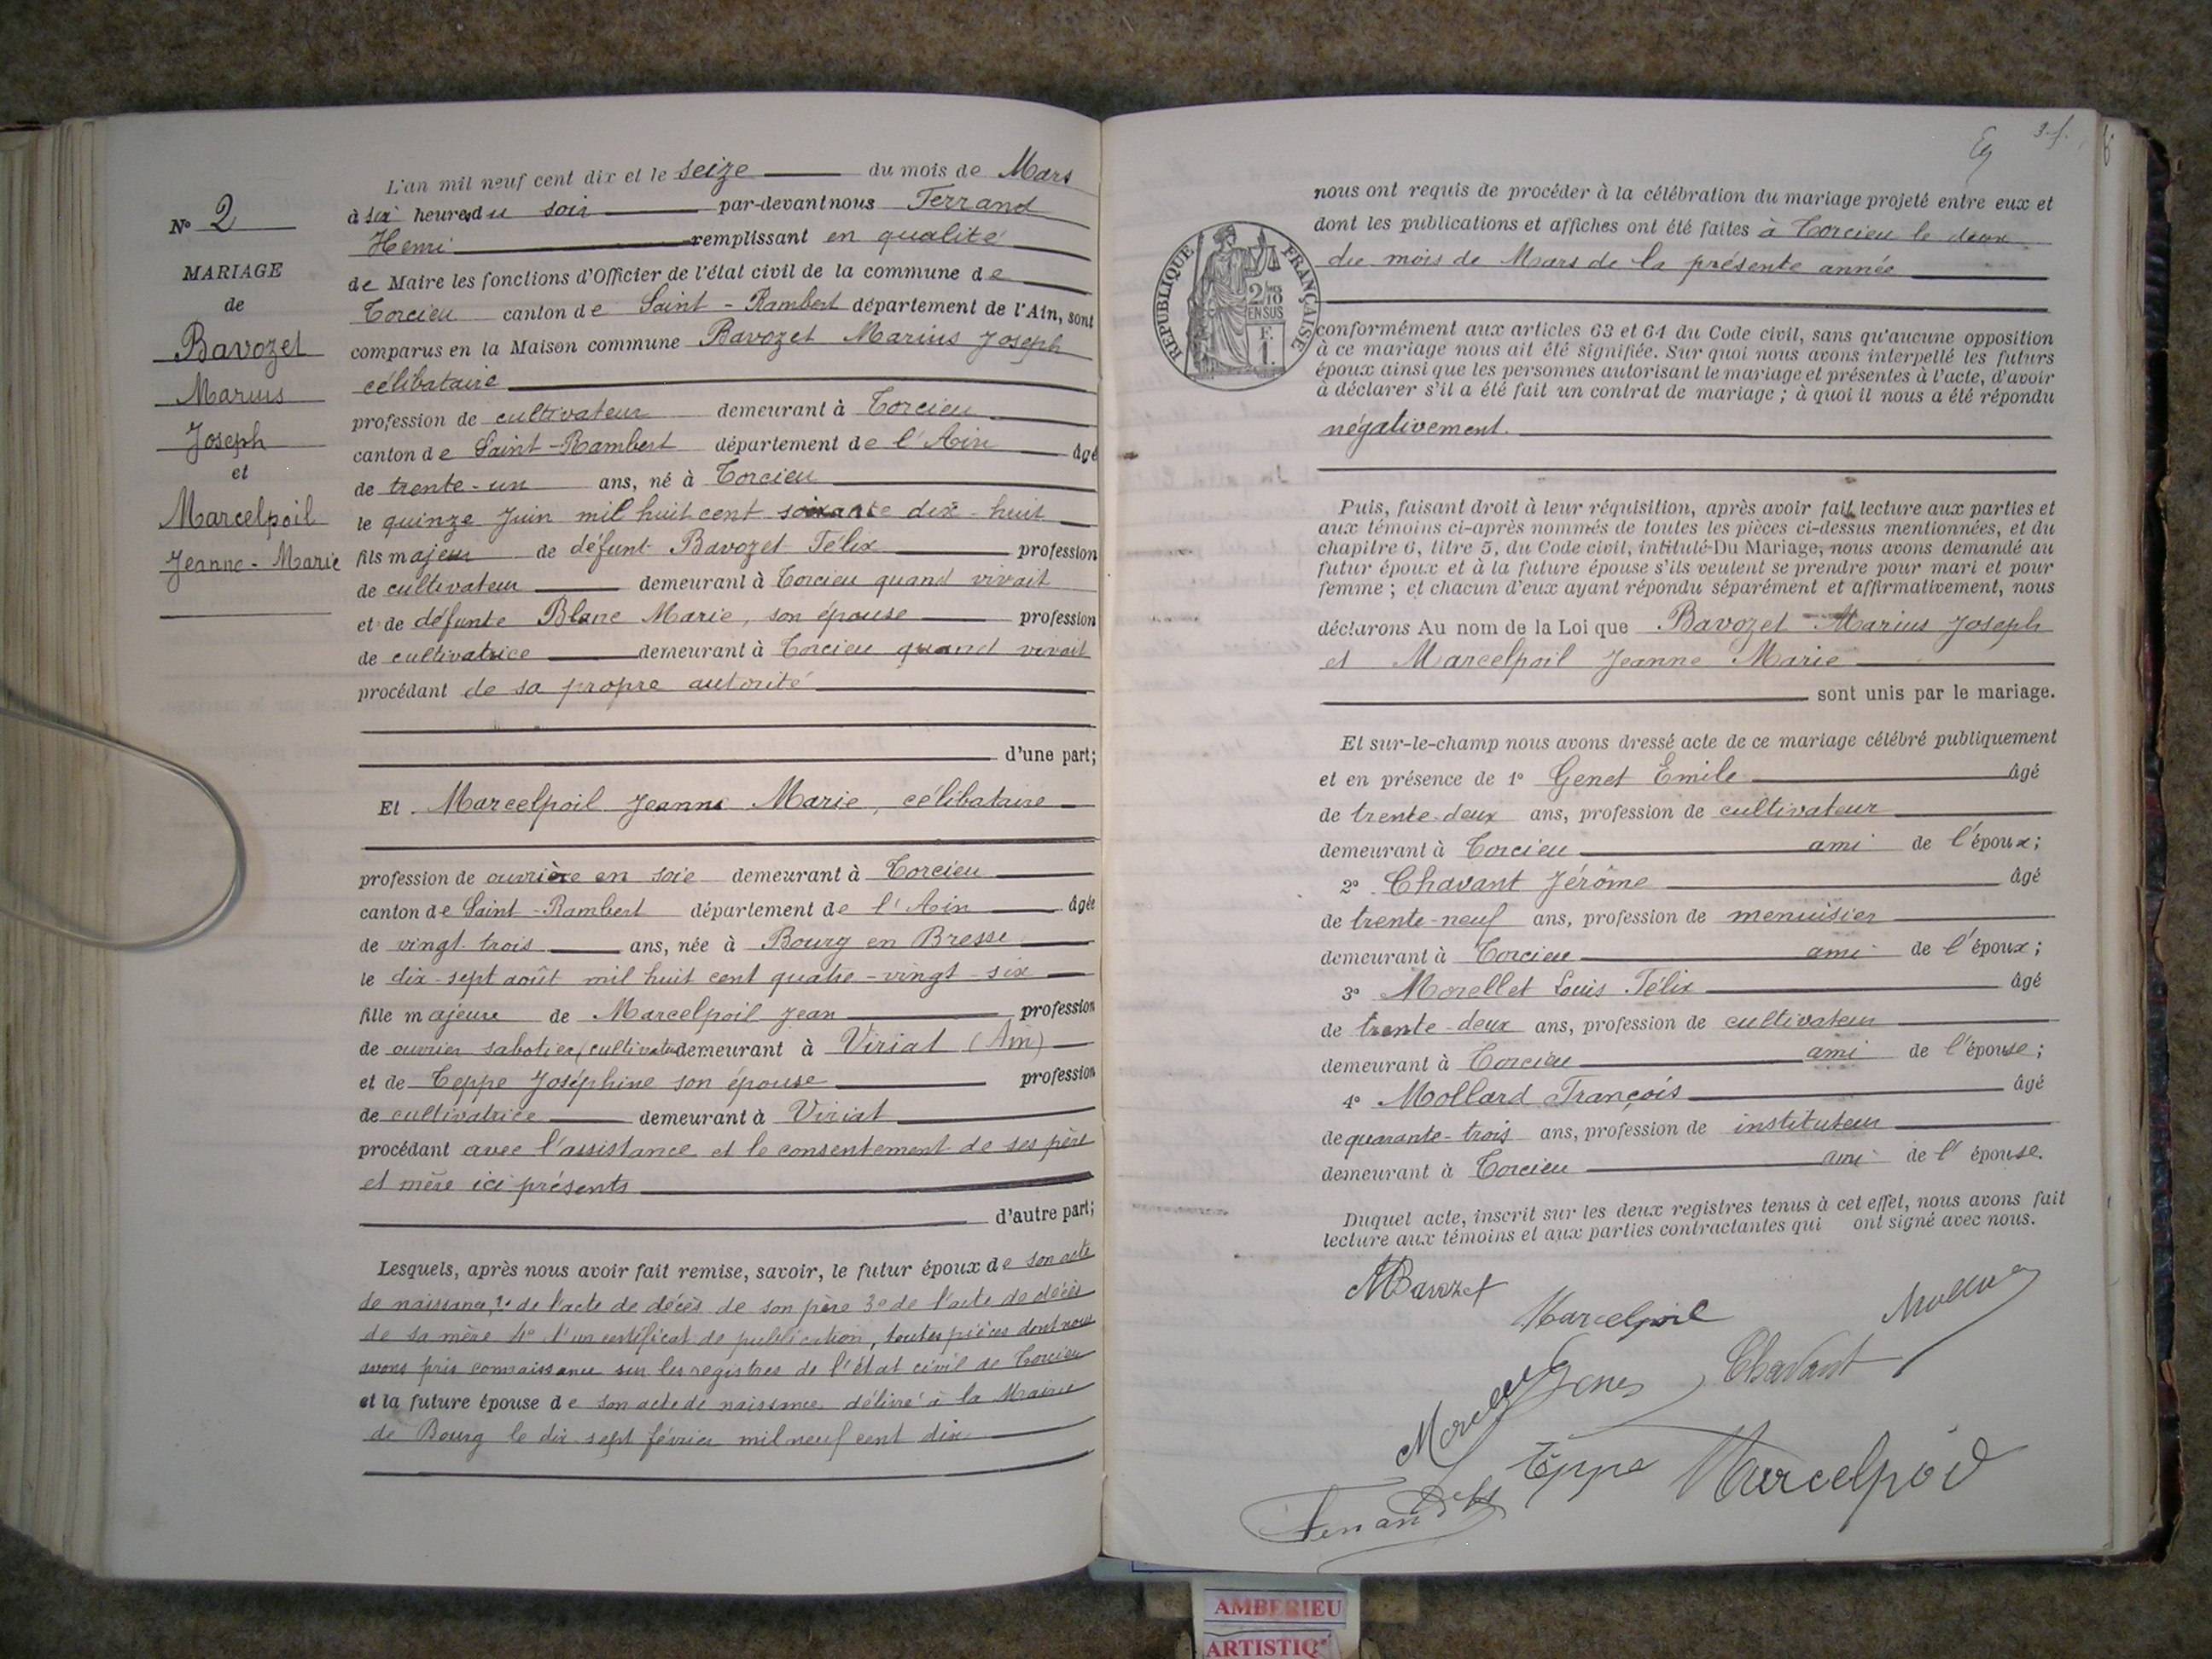 N° 2
MARIAGE
de
Bavozet
Marius
Joseph
et
Marcelpoil
Jeanne-Marie
L'an mil neuf cent dix et le seize du mois de Mars
à six heures du soir par-devant nous Ferrand
Henri remplissant en qualité
de Maire les fonctions d'Officier de l'état civil de la commune de
Torcieu canton de Saint-Rambert département de l'Ain, sont
comparus en la Maison commune Bavozet Marius Joseph
célibataire
profession de cultivateur demeurant à Torcieu
canton de Saint-Rambert département de l'Ain âgé
de trente-un ans, né à Torcieu
le quinze Juin mil huit cent soixante dix-huit
fils majeur de défunt Bavozet Félix profession
de cultivateur demeurant à Torcieu quand vivait
et de défunte Blanc Marie, son épouse profession
de cultivatrice demeurant à Torcieu quand vivait
procédant de sa propre autorité
d'une part;
Et Marcelpoil Jeanne Marie, célibataire
profession de ouvrière en soie demeurant à Torcieu
canton de Saint-Rambert département de l'Ain âgée
de vingt-trois ans, née à Bourg en Bresse
le dix-sept août mil huit cent quatre-vingt-six
fille majeure de Marcelpoil Jean profession
de ouvrier sabotier (cultivateur demeurant à Viriat (Ain)
et de Teppe Joséphine son épouse profession
de cultivatrice demeurant à Viriat
procédant avec l'assistance et le consentement de ses père
et mère ici présents
d'autre part;
Lesquels, après nous avoir fait remise, savoir, le futur époux de son acte
de naissance, 2° de l'acte de décès de son père 3° de l'acte de décès
de sa mère 4° d'un certificat de publication, toutes pièces dont nous
avons pris connaissance sur les registres de l'état civil de Torcieu
et la future épouse de son acte de naissance délivré à la Mairie
de Bourg le dix-sept février mil neuf cent dix
RÉPUBLIQUE FRANÇAISE
2/10
EN SUS
F.
1.
nous ont requis de procéder à la célébration du mariage projeté entre eux et
dont les publications et affiches ont été faites à Torcieu le deux
du mois de Mars de la présente année
conformément aux articles 63 et 64 du Code civil, sans qu'aucune opposition
à ce mariage nous ait été signifiée. Sur quoi nous avons interpellé les futurs
époux ainsi que les personnes autorisant le mariage et présentes à l'acte, d'avoir
à déclarer s'il a été fait un contrat de mariage ; à quoi il nous a été répondu
négativement.
Puis, faisant droit à leur réquisition, après avoir fait lecture aux parties et
aux témoins ci-après nommés de toutes les pièces ci-dessus mentionnées, et du
chapitre 6, titre 5, du Code civil, intitulé Du Mariage, nous avons demandé au
futur époux et à la future épouse s'ils veulent se prendre pour mari et pour
femme ; et chacun d'eux ayant répondu séparément et affirmativement, nous
déclarons Au nom de la Loi que Bavozet Marius Joseph
et Marcelpoil Jeanne Marie
sont unis par le mariage.
Et sur-le-champ nous avons dressé acte de ce mariage célébré publiquement
et en présence de 1° Genet Emile âgé
de trente-deux ans, profession de cultivateur
demeurant à Torcieu ami de l'époux;
2° Chavant Jérôme âgé
de trente-neuf ans, profession de menuisier
demeurant à Torcieu ami de l'époux;
3° Morellet Louis Félix âgé
de trente-deux ans, profession de cultivateur
demeurant à Torcieu ami de l'épouse;
4° Mollard François âgé
de quarante-trois ans, profession de instituteur
demeurant à Torcieu ami de l'épouse.
Duquel acte, inscrit sur les deux registres tenus à cet effet, nous avons fait
lecture aux témoins et aux parties contractantes qui ont signé avec nous.
MBavozet
Marcelpoil
Chavant
Teppe Marcelpoil
AMBERIEU
ARTISTIQ